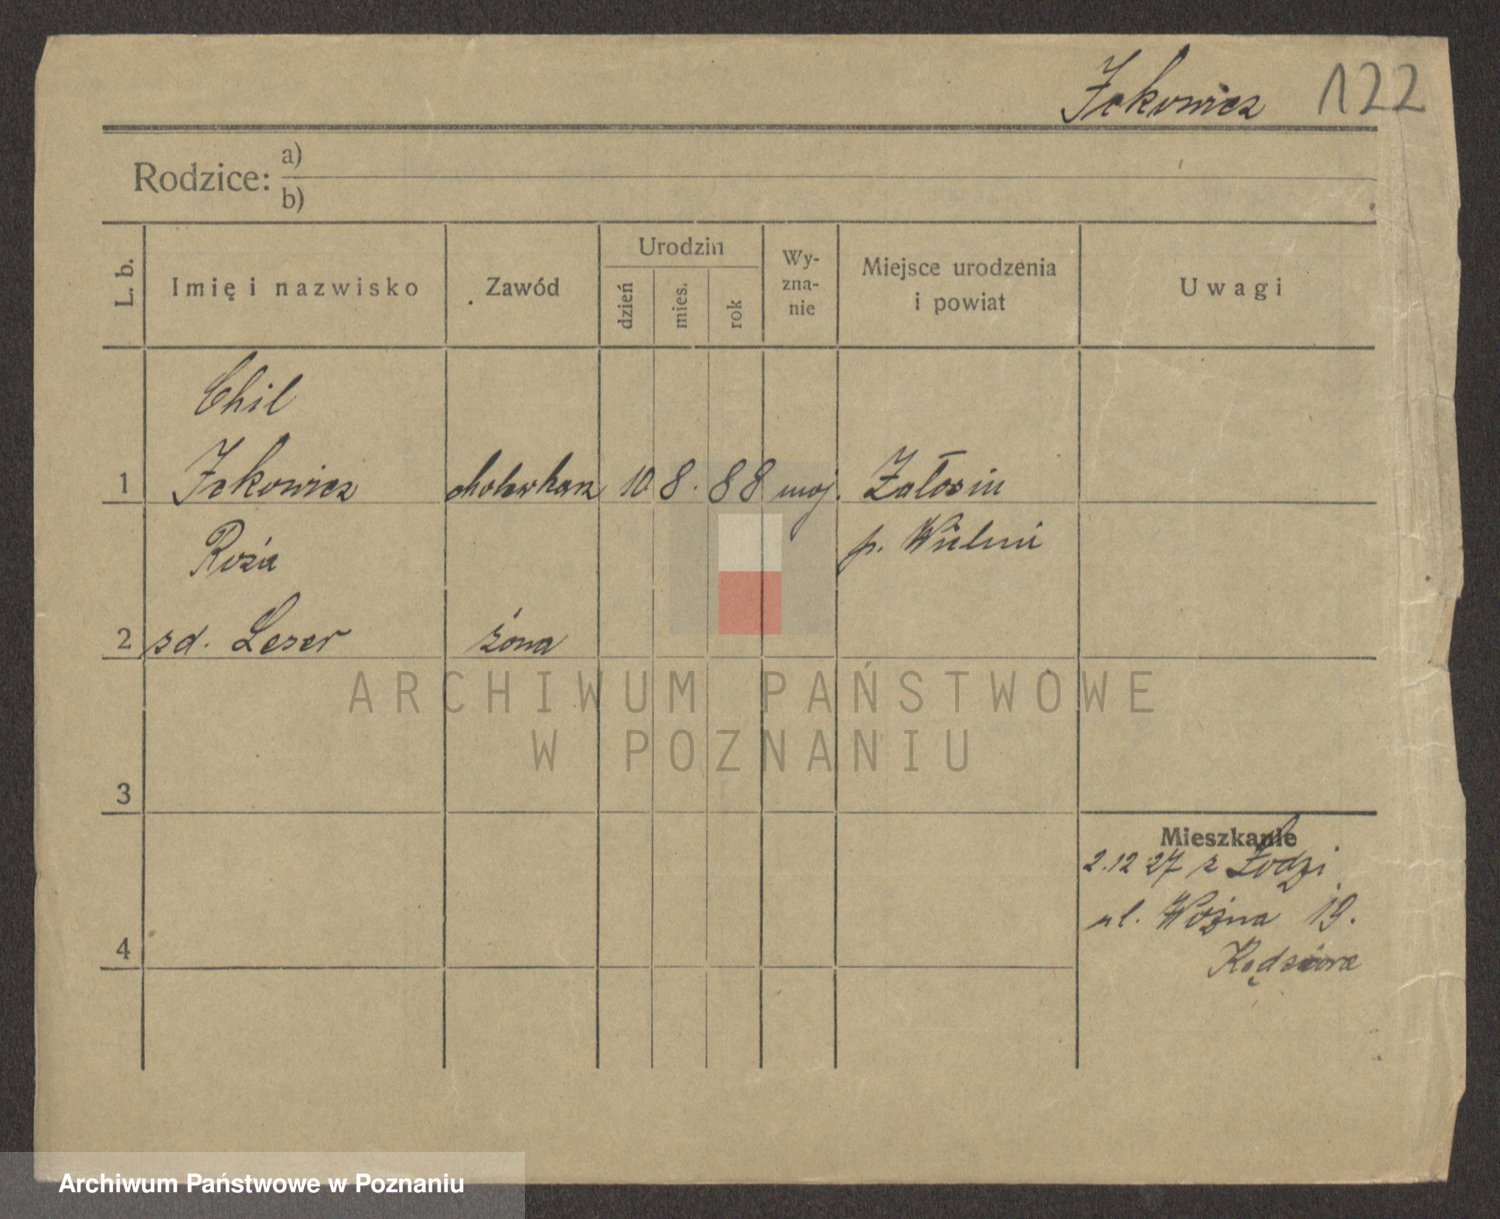 Ickowicz 122
Rodzice: a)
b)
L. b. Imię i nazwisko Zawód Urodzin dzień mies. rok Wy-zna-nie Miejsce urodzenia i powiat Uwagi
Chil
1 Ickowicz cholewkarz 10 8. 88 moj. Załosin
Roża p. Wieluń
2 zd. Leser żona
ARCHIWUM PAŃSTWOWE
W POZNANIU
3
Mieszkanie
2.12 27 z Łodzi
ul. Woźna 19.
4
Archiwum Państwowe w Poznaniu